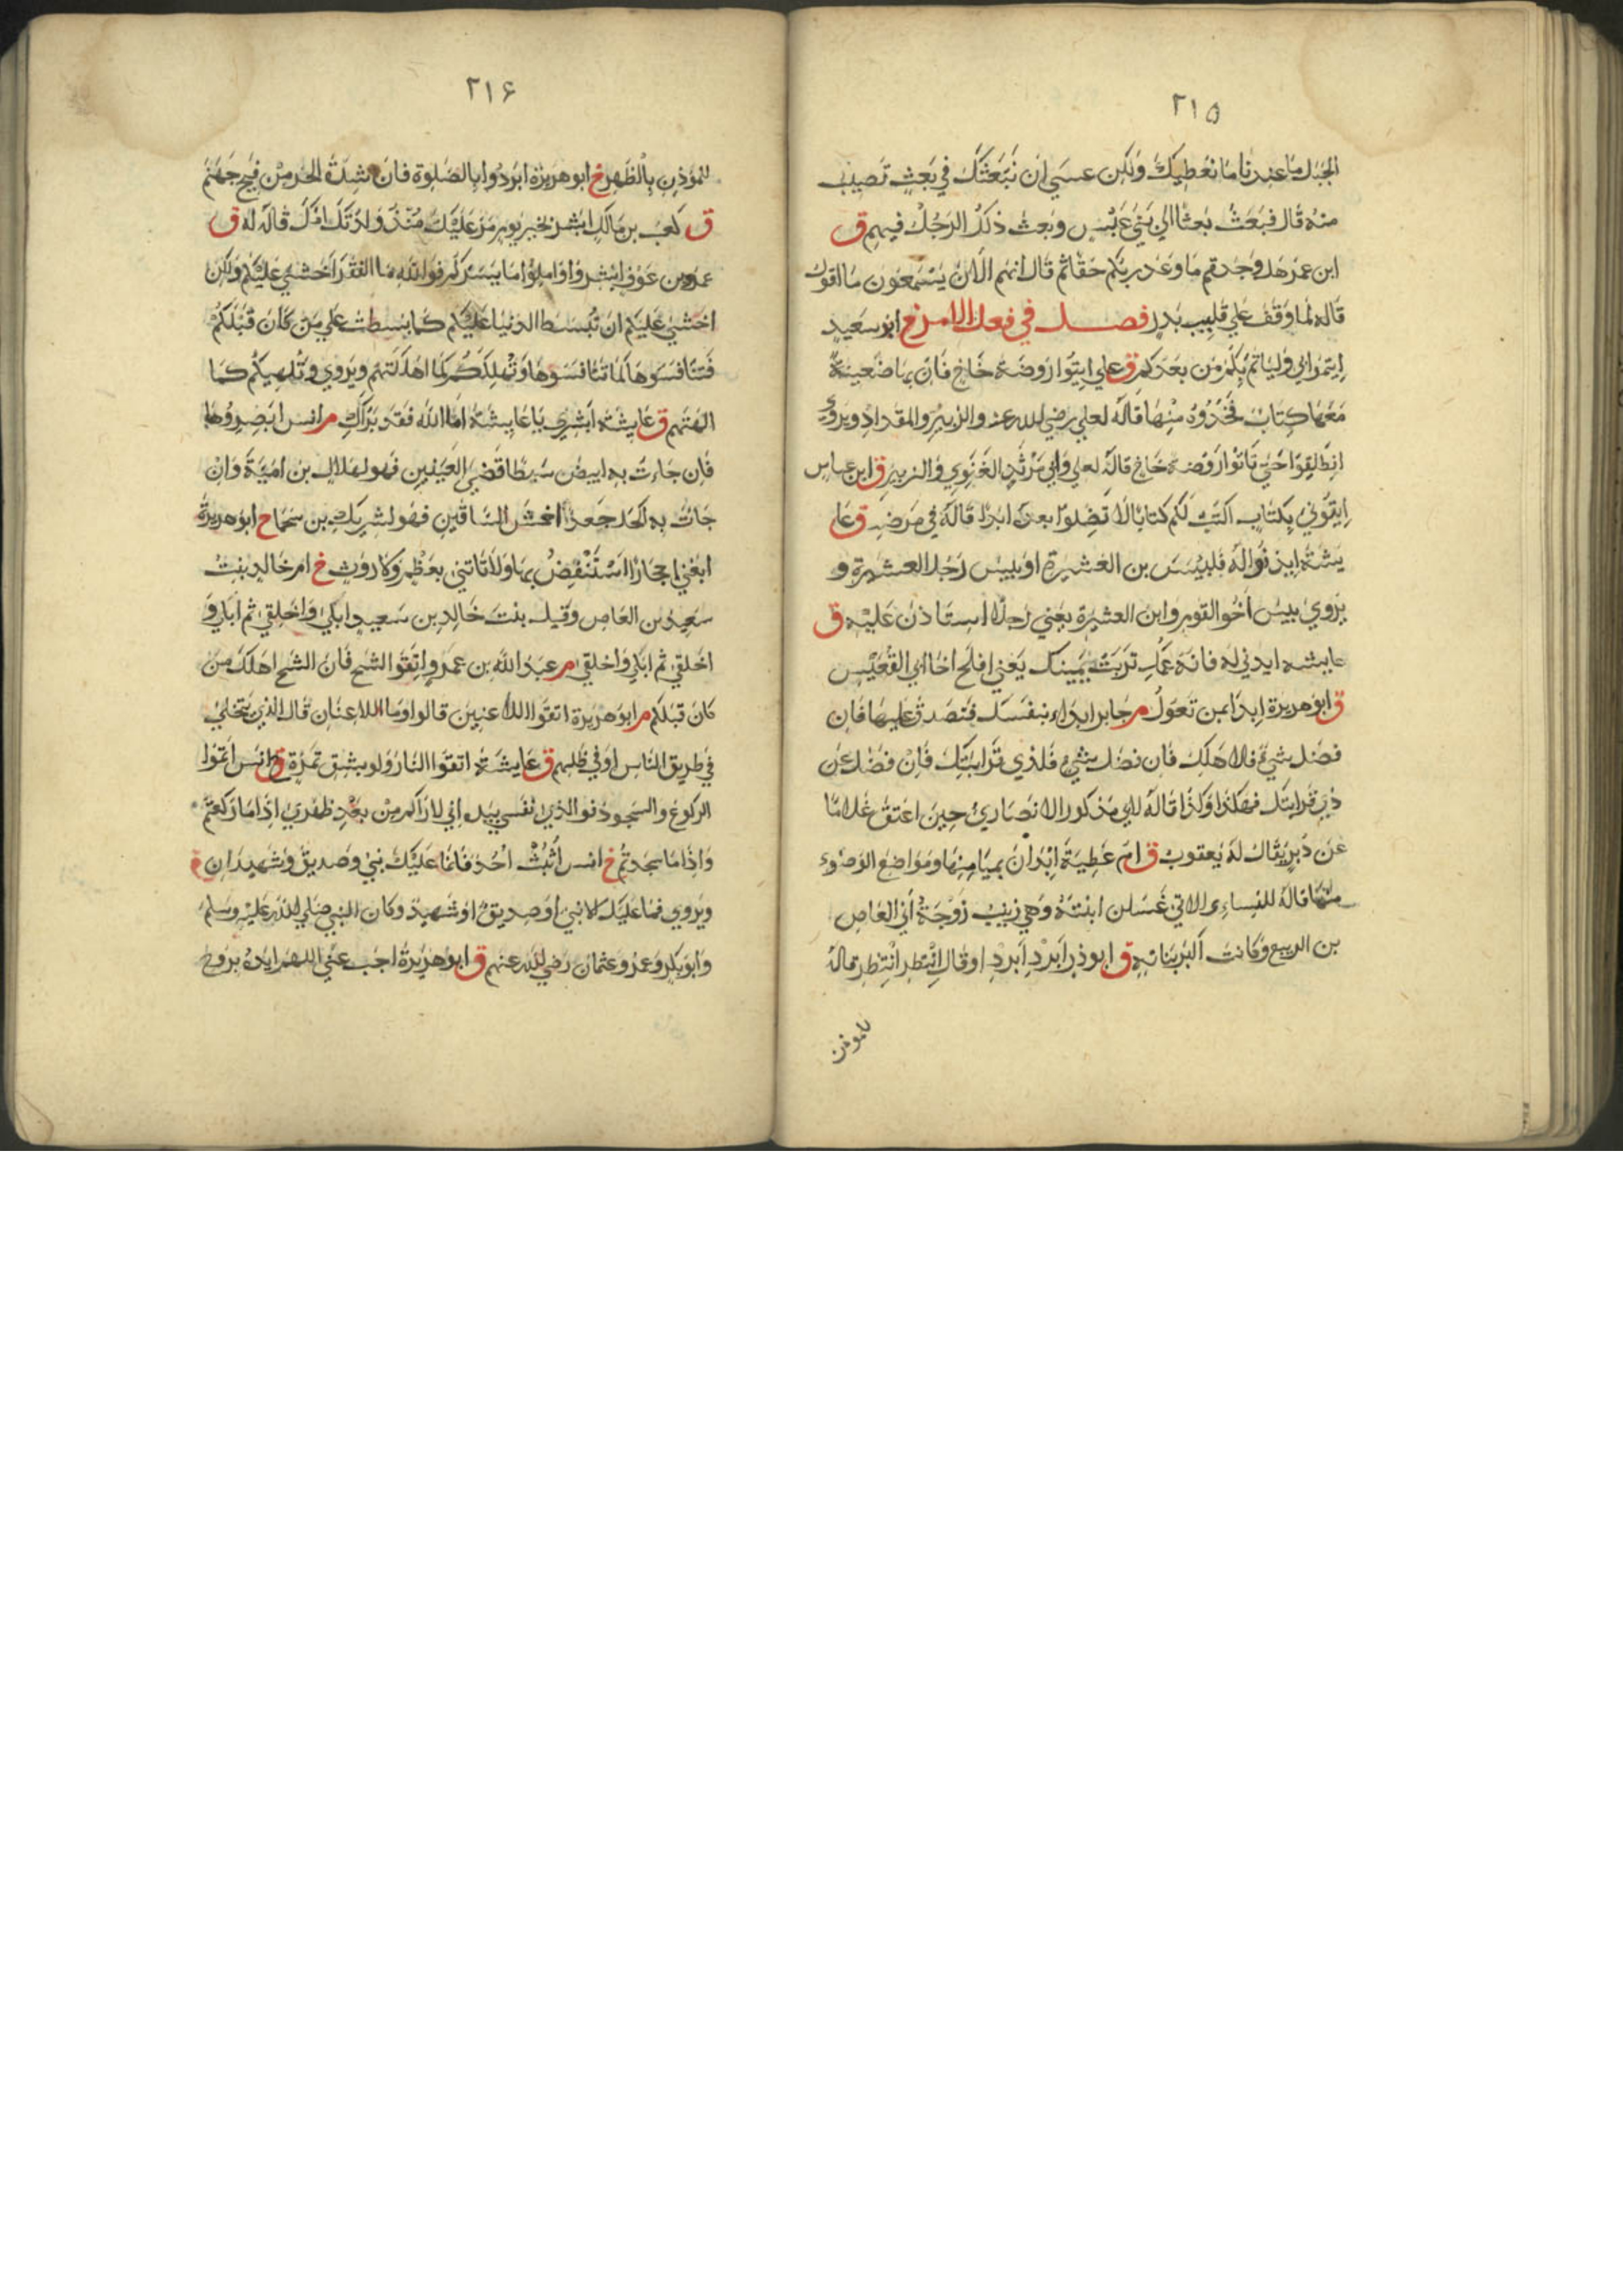 ٢١٥
الجبل ما عندنا ما نعطيك ولكن عسي ان نبعثك في بعث تصيب
منه قال فبعث بعثا الي بني عبس وبعث ذلك الرجل فيهم ق
ابن عمر هل وجدتم ما وعد ربكم حقا ثم قال انهم الان يسمعون ما اقول
قاله لما وقف علي قليب بدر فصل في فعل الامر م ابو سعيد
ايتموا بي وليأتم بكم من بعدكم ق علي ايتوا روضة خاخ فان بها ضعينة
معها كتاب فخذوه منها قاله لعلي رضي الله عنه والزبير والمقداد ويروي
انطلقوا حتي تاتوا روضة خاخ قاله لعلي وابي مرثد الغنوي والزبير ق ابن عباس
ايتوني بكتاب اكتب لكم كتابا لا تضلوا بعده ابدا قاله في مرضه ق عا
يشة ايذنوا له فلبيس بن العشيرة او بيس رجل العشيرة و
يروي بيس اخو القوم وابن العشيرة يعني رجلا استاذن عليه ق
عايشه ايذني له فانه عمك تربت يمينك يعني افلح اخا ابي القعيس
ق ابو هريرة ابدا بمن تعول م جابر ابداء بنفسك فتصدق عليها فان
فضل شيء فلاهلك فان فضل شيء فلذي قرابتك فان فضل عن
ذي قرابتك فهكذا وكذا قاله لابي مذكور الانصاري حين اعتق غلاما
عن دبر يقال له يعقوب ق ام عطية ابدان بميامنها ومواضع الوضوء
منها قاله للنساء الاتي غسلن ابنته وهي زينب زوجة ابي العاص
بن الربيع وكانت اكبر بناته ق ابو ذر ابرد ابرد او قال انتظر انتظر قاله
للموذن
٢١۶
للموذن بالظهر خ ابو هريرة ابردوا بالصلوة فان شدة الحر من فيح جهنم
ق كعب بن مالك ابشر بخير يوم مر عليك منذ ولدتك امك قاله له ق
عمرو بن عوف ابشروا واملوا ما يسركم فوالله ما الفقر اخشي عليكم ولكن
اخشي عليكم ان تبسط الدنيا عليكم كما بسطت علي من كان قبلكم
فتنافسوها كما تنافسوها وتهلككم كما اهلكتهم ويروي وتلهيكم كما
الهتهم ق عايشة ابشري يا عايشة اما الله فقد براك م انس ابصروها
فان جاءت به ابيض سبطا قضي العينين فهو لهلال بن امية وان
جات به اكحل جعدا احمش الساقين فهو لشريك بن سحماح ابو هريرة
ابغني احجارا استنفض بها ولا تاتني بعظم ولا روث خ ام خالد بنت
سعيد بن العاص وقيل بنت خالد بن سعيد ابلي واخلقي ثم ابلي و
اخلقي ثم ابلي واخلقي م عبد الله بن عمرو اتقوا الشح فان الشح اهلك من
كان قبلكم م ابو هريرة اتقوا اللاعنين قالوا وما اللاعنان قال الذي يتخلي
في طريق الناس او في ظلهم ق عايشة اتقوا النار ولو بشق تمرة ق انس اتموا
الركوع والسجود فوالذي نفسي بيده اني لاراكم من بعد ظهري اذا ما ركعتم
واذا ما سجدتم خ انس اثبت احد فانما عليك نبي وصديق وشهيدان
ويروي فما عليك الا نبي او صديق او شهيد وكان النبي صلي الله عليه وسلم
وابو بكر وعمر وعثمان رضي الله عنهم ق ابو هريرة اجب عني اللهم ايده بروح